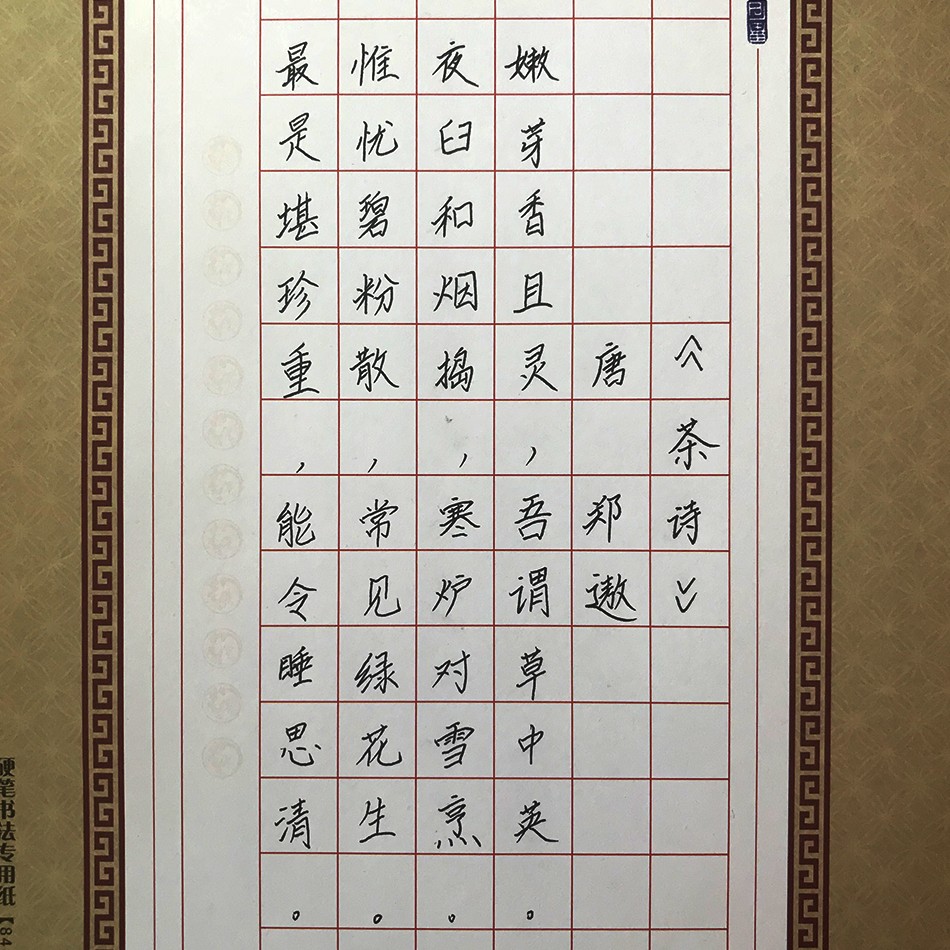 《茶诗》
唐 郑遨
嫩芽香且灵，吾谓草中英。
夜臼和烟捣，寒炉对雪烹。
惟忧碧粉散，常见绿花生。
最是堪珍重，能令睡思清。
硬笔书法专用纸【84